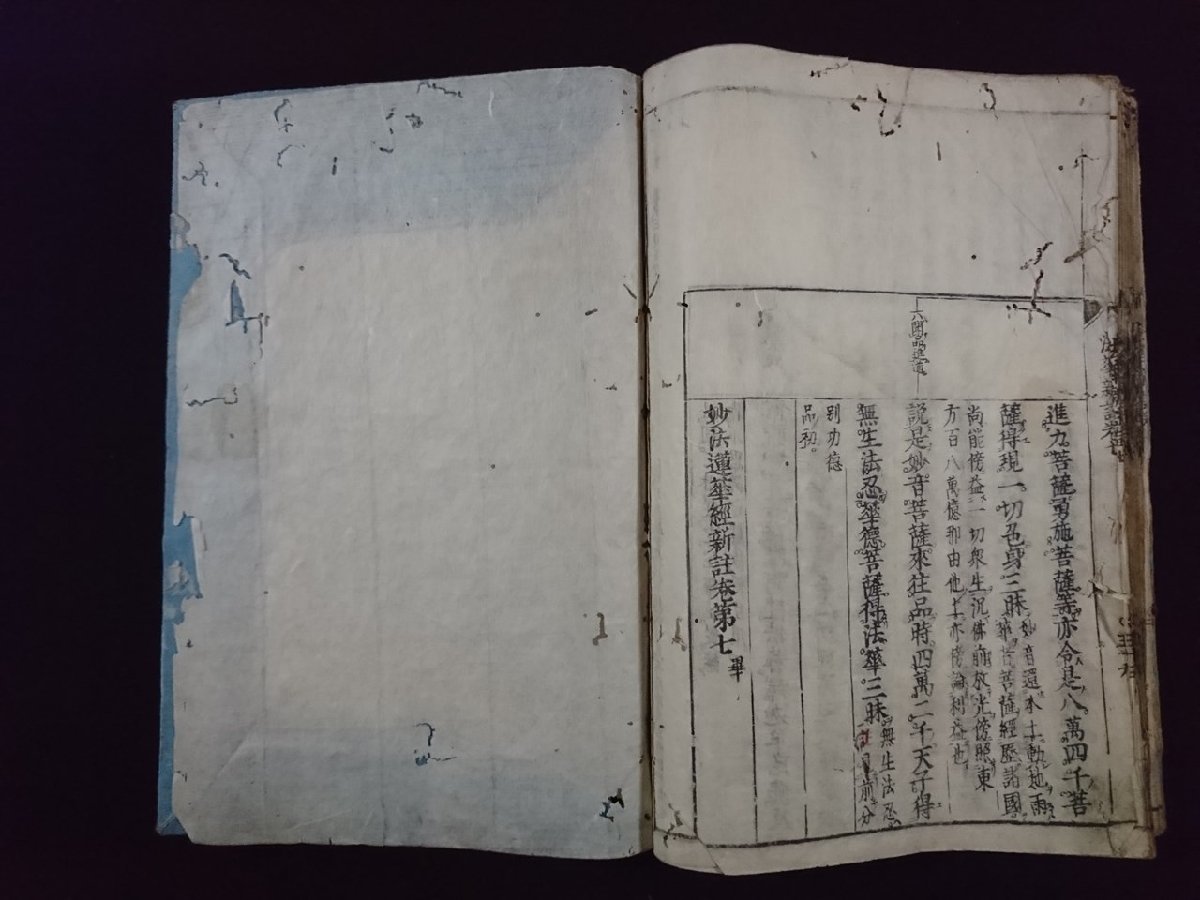 進力菩薩勇施菩薩等亦令是八萬四千菩
薩得現一切色身三昧 妙音還本土動地雨
華昔菩薩經歴諸國
尚能傍益一切衆生況佛前放光傍照東
方百八萬億那由他土亦傍論利益也
說是妙音菩薩來往品時四萬二千天子得
無生法忍華德菩薩得法華三昧 無生法忍
前分
別功德
品初
妙法蓮華經新註卷第七 畢